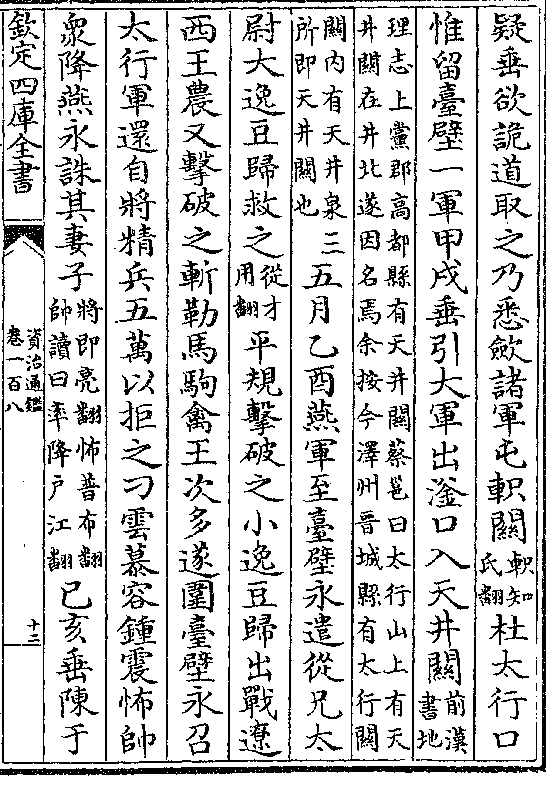 疑垂欲詭道取之乃悉斂諸軍屯軹關軹知氏翻杜太行口
惟留臺壁一軍甲戌垂引大軍出滏口入天井關前漢書地
理志上黨郡高都縣有天井關蔡邕曰太行山上有天
井關在井北遂因名焉余按今澤州晉城縣有太行關
關内有天井泉三
所即天井關也
五月乙酉燕軍至臺壁永遣從兄太
尉大逸豆歸救之從才用翻平規擊破之小逸豆歸出戰遼
西王農又擊破之斬勒馬駒禽王次多遂圍臺壁永召
太行軍還自將精兵五萬以拒之刁雲慕容鍾震怖帥
衆降燕永誅其妻子將即亮翻怖普布翻帥讀曰率降户江翻己亥垂陳于
欽定四庫全書
資治通鑑
卷一百八
十三